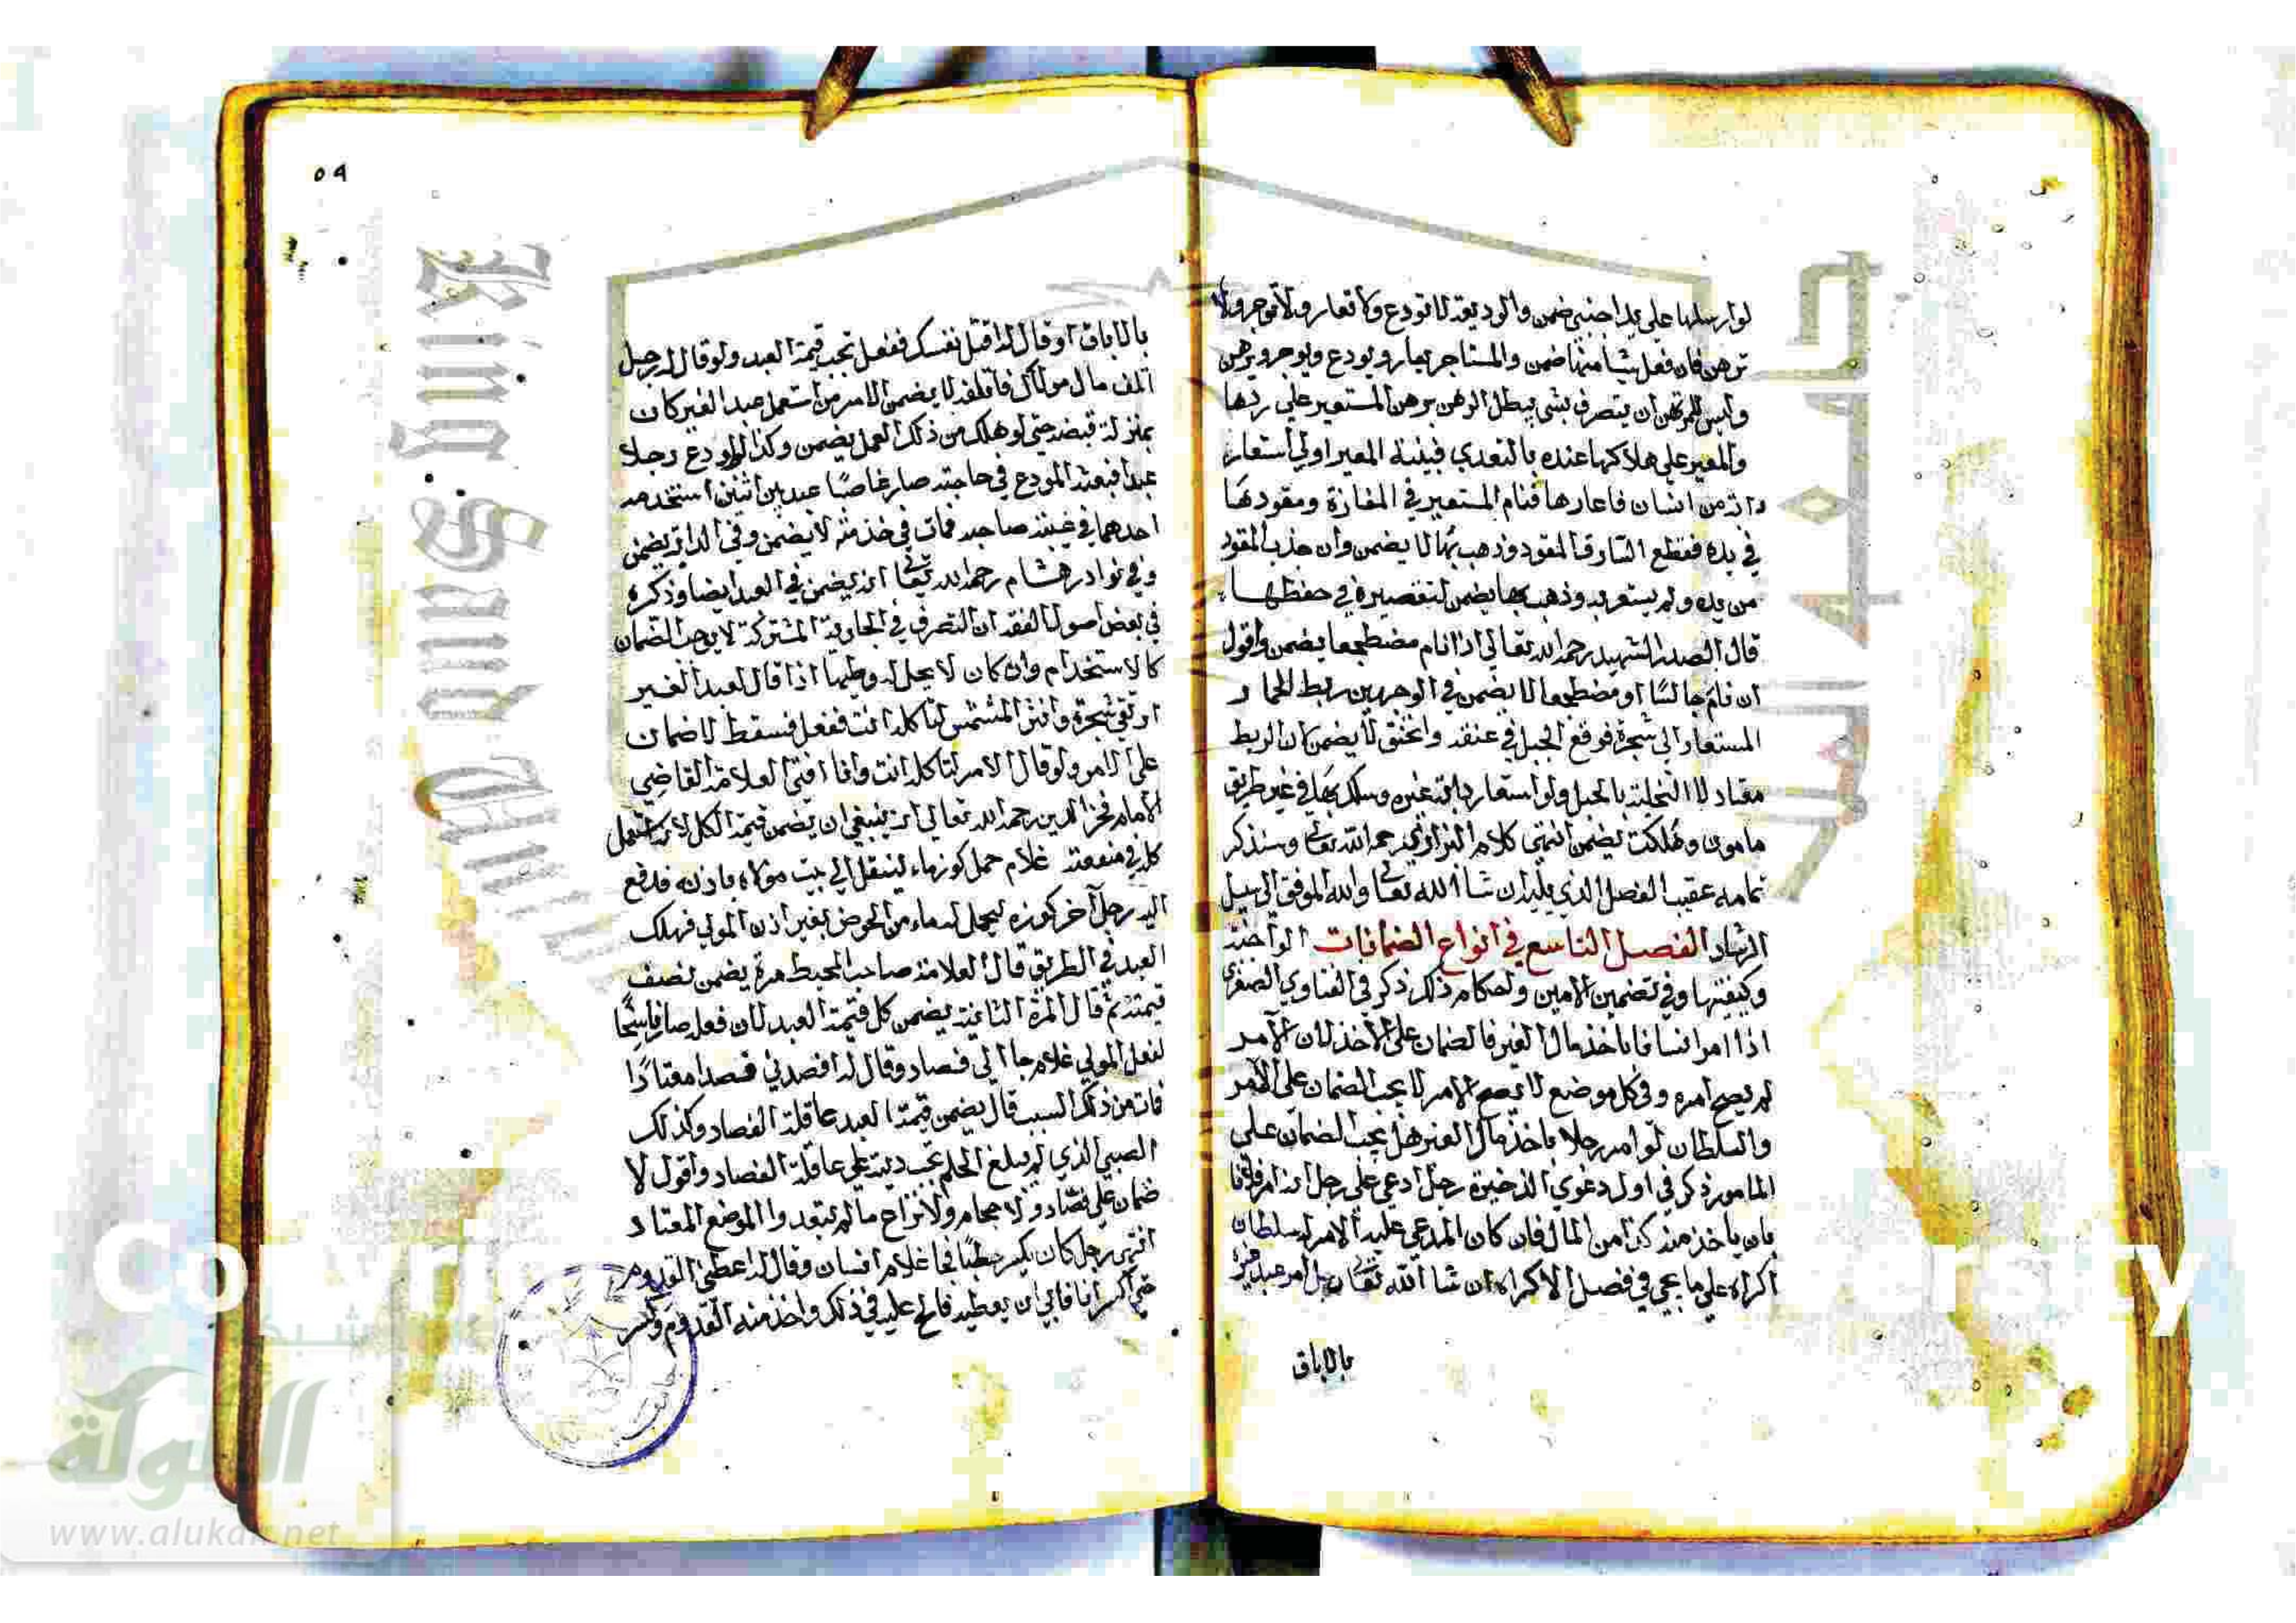 لو ارسلها على يد اجنبي ضمن والوديعة لا تودع ولا تعار ولا توجر ولا
ترهن فان فعل شيا منها ضمن والمستاجر يعار ويودع ويوجر ويرهن
وليس للمرتهن ان يتصرف بشي يبطل الرهن برهن المستعير على ردها
والمعير على هلاكها عنده بالتعدي فبينة المعير اولى استعار
دابة من انسان فاعارها فنام المستعير في المفازة ومقودها
في يده فقطع السارق المقود وذهب بها لا يضمن وان جذب المقود
من يده ولم يشعر به وذهب بها يضمن لتقصيره في حفظها
قال الصدر الشهيد رحمه الله تعالى اذا نام مضطجعا يضمن واقول
ان نام جالسا او مضطجعا لا يضمن في الوجهين ربط الحمار
المستعار الى شجرة فوقع الحبل في عنقه وانخنق لا يضمن لان الربط
معتاد لا التخلية بالحبل ولو استعار دابة غيره وسلك بها في غير طريق
مامون وهلكت يضمن انتهى كلام البزازي رحمه الله تعالى وسنذكر
تمامه عقيب الفصل الذي يليه ان شا الله تعالى والله الموفق الى سبيل
الرشاد الفصل التاسع في انواع الضمانات الواجبة
وكيفيتها وفي تضمين الامين واحكام ذلك ذكر في الفتاوي الصغرى
اذا امر انسانا باخذ مال الغير فالضمان على الاخذ لان الآمر
لم يصح امره وفي كل موضع لا يصح الامر لا يجب الضمان على الآمر
والسلطان لو امر رجلا باخذ مال الغير هل يجب الضمان على
المامور ذكر في اول دعوى الذخيرة رجل ادعى على رجل انه امر فلانا
بان ياخذ منه كذا من المال فان كان المدعى عليه الامر سلطان
اكراه على ما يجي في فصل الاكراه ان شا الله تعالى رجل امر عبد غيره
بالاباق
٥٩
بالاباق او قال له اقتل نفسك ففعل تجب قيمة العبد ولو قال له رجل
اتلف مال مولاك فاتلفه لا يضمن الامر من استعمل عبد الغير كان
بمنزلة قبضه حتى لو هلك من ذلك العمل يضمن وكذا لو اودع رجلا
عبدا فبعثه المودع في حاجته صار غاصبا عبد بين اثنين استخدمه
احدهما في غيبة صاحبه فمات في خدمته لا يضمن وفي الدابة يضمن
وفي نوادر هشام رحمه الله تعالى انه يضمن في العبد ايضا وذكره
في بعض اصول الفقه ان التصرف في الجارية المشتركة لا يوجب الضمان
كالاستخدام وان كان لا يحل له وطيها اذا قال لعبد الغير
ارتقي شجرة وانثر المشمش لتاكله انت ففعل فسقط لا ضمان
على الامر ولو قال الامر لتاكله انت وانا افتى العلامة القاضي
الامام فخر الدين رحمه الله تعالى انه ينبغي ان يضمن قيمة الكل لانه استعمل
كله في منفعته غلام حمل كوز ماء لينقل الى بيت مولاه باذنه فدفع
اليه رجل آخر كوزه ليحمل له ماء من الحوض بغير اذن المولى فهلك
العبد في الطريق قال العلامة صاحب المحيط مرة يضمن نصف
قيمته ثم قال المرة الثانية يضمن كل قيمة العبد لان فعله صار ناسخا
لفعل المولى غلام جا الى فصاد وقال له افصدني فصدا معتادا
فمات من ذلك السبب قال يضمن قيمة العبد عاقلة الفصاد وكذلك
الصبي الذي لم يبلغ الحلم تجب ديته على عاقلة الفصاد واقول لا
ضمان على فصاد ولا حجام ولا نزاع ما لم يتعدوا الموضع المعتاد
انتهى رجل كان يكسر حطبا فجا غلام انسان وقال له اعطني القدوم
حتى اكسر انا فابي ان يعطيه فالح عليه في ذلك واخذ منه القدوم وكسر
King Saud Univ
جامعة الملك
Copyri rsity
شبكة
الألوكة
www.alukah.net